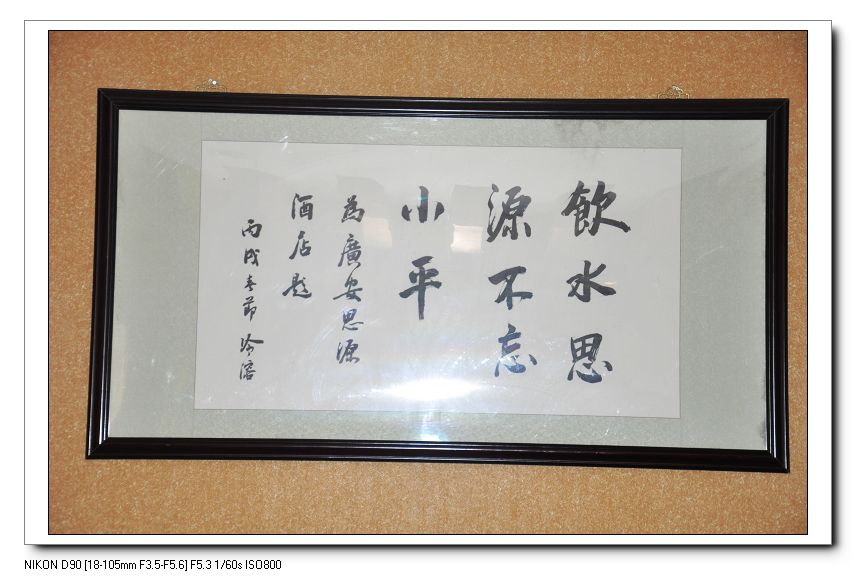 飲水思
源不忘
小平
為廣安思源
酒店題
丙戌春節 冷溶
NIKON D90 [18-105mm F3.5-F5.6] F5.3 1/60s ISO800